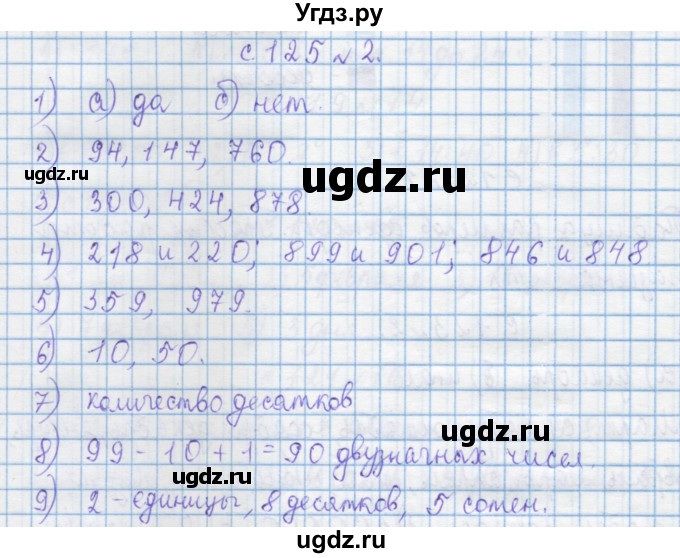 Угдз.ру
с. 125 № 2.
1) а) да б) нет.
2) 94, 147, 760.
ugdz.ru
ugdz.ru
3) 300, 424, 878.
4) 218 и 220; 899 и 901; 846 и 848
5) 359, 979.
6) 10, 50.
7) количество десятков
ugdz.ru
8) 99 - 10 + 1 = 90 двузначных чисел.
ugdz.ru
9) 2 - единицы, 8 десятков, 5 сотен.
ugdz.ru